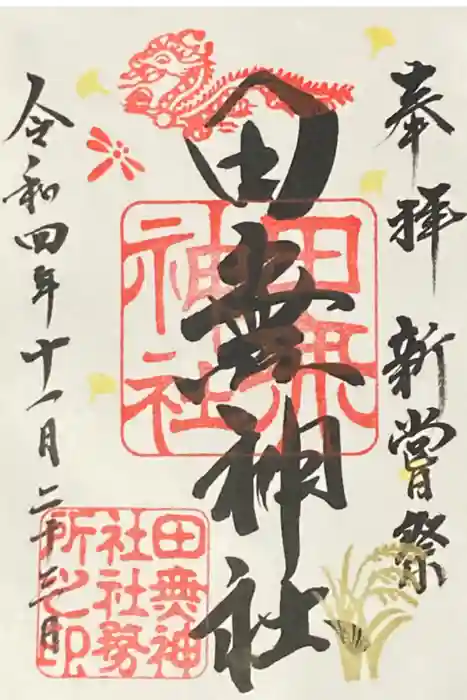 奉拝 新嘗祭
田無神社
田無
神社
田無神
社社務
所之印
令和四年十一月二十三日